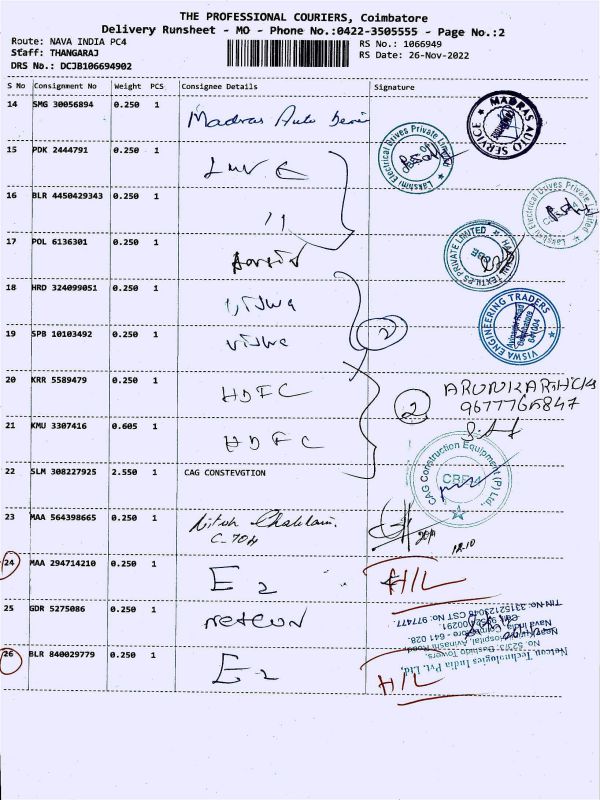 THE PROFESSIONAL COURIERS, Coimbatore
Delivery Runsheet - MO - Phone No.:0422-3505555 - Page No.:2
Route: NAVA INDIA PC4
Staff: THANGARAJ
DRS No.: DCJB106694902
RS No.: 1066949
RS Date: 26-Nov-2022
S No Consignment No Weight PCS Consignee Details Signature
14 SMG 30056894 0.250 1 Madras Auto
MADRAS AUTO SERVICE
15 PDK 2444791 0.250 1
Lakshmi Electrical Drives Private Limited
16 BLR 4450429343 0.250 1 11
Electrical Drives Private Limited
17 POL 6136301 0.250 1
TEXTILES PRIVATE LIMITED
18 HRD 324099051 0.250 1 Viswa
19 SPB 10103492 0.250 1 Viswa
2
VISWA ENGINEERING TRADERS
Avinashi Road
Coimbatore
641004
20 KRR 5589479 0.250 1 HDFC
2 ARUNKARTHICK
9677766847
21 KMU 3307416 0.605 1 HDFC
22 SLM 308227925 2.550 1 CAG CONSTEVGTION
CAG Construction Equipment (P) Ltd.
CBE-4
23 MAA 564398665 0.250 1
C-704
12.10
24 MAA 294714210 0.250 1 E2 H/L
25 GDR 5275086 0.250 1 netcon
Netcon Technologies India Pvt. Ltd,
No. 523/3, Dashido Towers,
Avinashi Road,
Nava India, Coimbatore - 641 028.
TIN No: 33152123048 CST No: 977477
26 BLR 840029779 0.250 1 E2 H/L